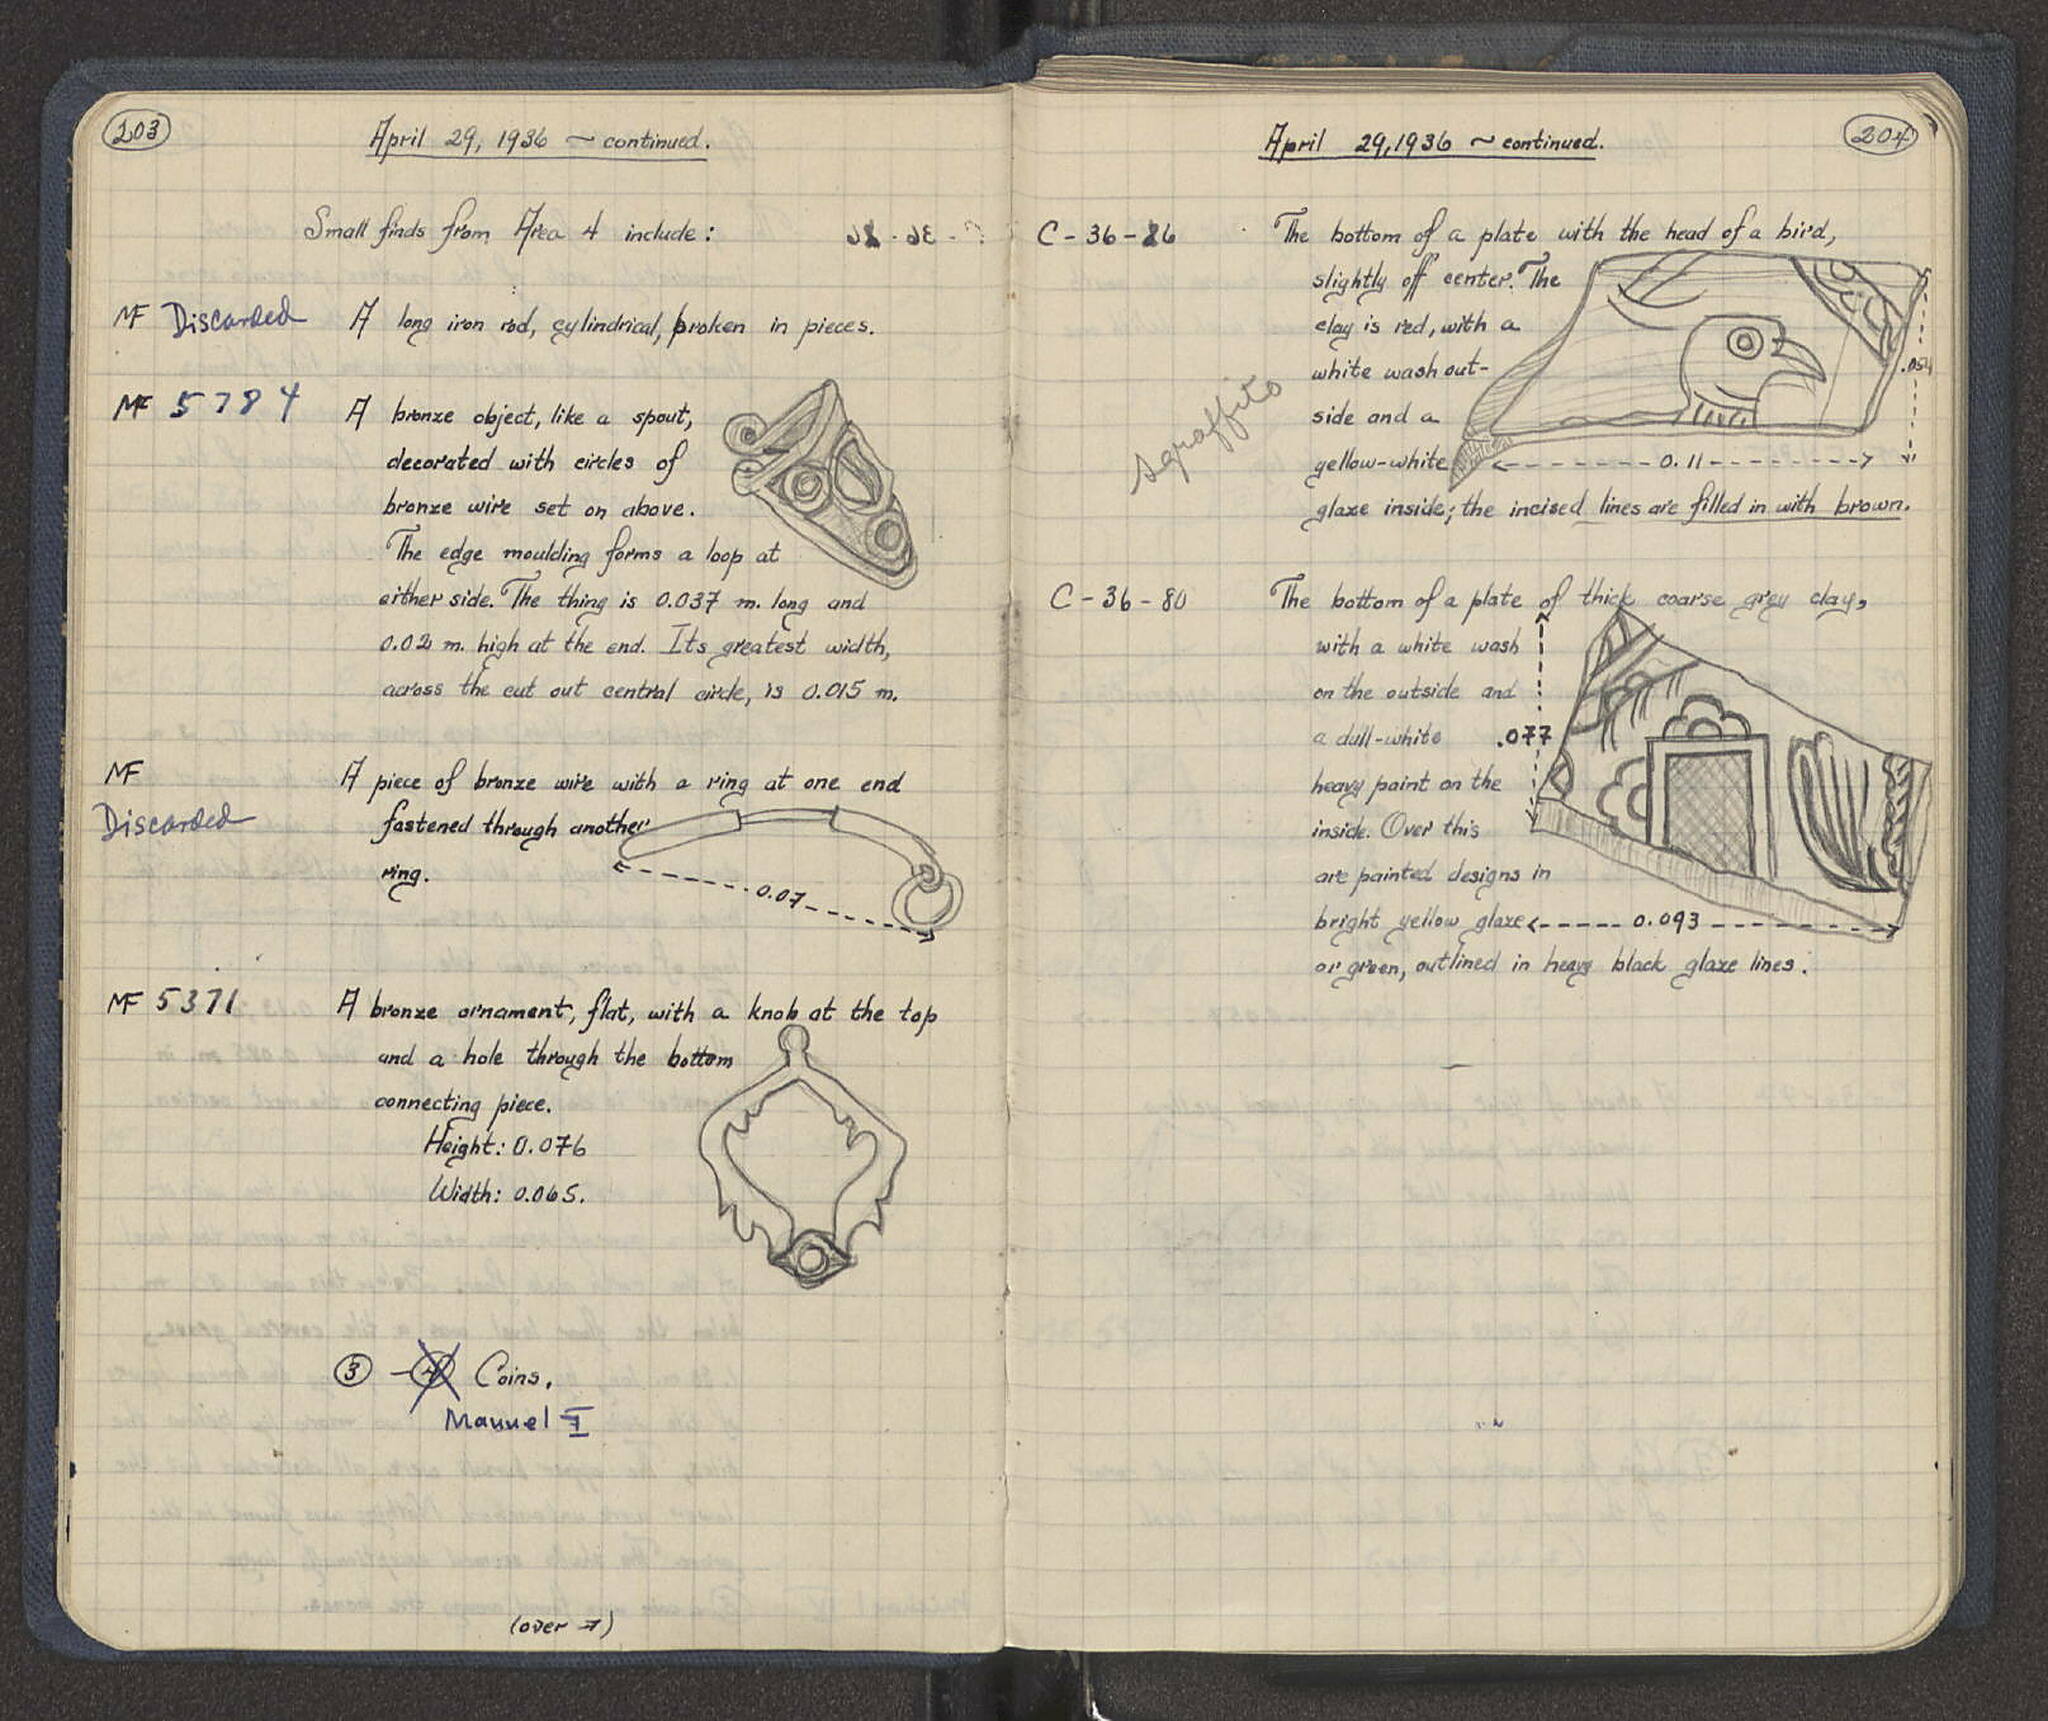 203
April 29, 1936 ~ continued.
Small finds from Area 4 include:
MF Discarded
A long iron rod, cylindrical, broken in pieces.
MF 5784
A bronze object, like a spout,
decorated with circles of
bronze wire set on above.
The edge moulding forms a loop at
either side. The thing is 0.037 m. long and
0.02 m. high at the end. Its greatest width,
across the cut out central circle, is 0.015 m.
MF
Discarded
A piece of bronze wire with a ring at one end
fastened through another
ring.
0.07
MF 5371
A bronze ornament, flat, with a knob at the top
and a hole through the bottom
connecting piece.
Height: 0.076
Width: 0.065.
③ – Coins.
Manuel I
(over →)
204
April 29, 1936 ~ continued.
C-36-26
The bottom of a plate with the head of a bird,
slightly off center. The
clay is red, with a
white wash out-
side and a
yellow-white
glaze inside; the incised lines are filled in with brown.
sgraffito
.054
0.11
C-36-80
The bottom of a plate of thick coarse grey clay,
with a white wash
on the outside and
a dull-white
heavy paint on the
inside. Over this
are painted designs in
bright yellow glaze
or green, outlined in heavy black glaze lines.
.077
0.093